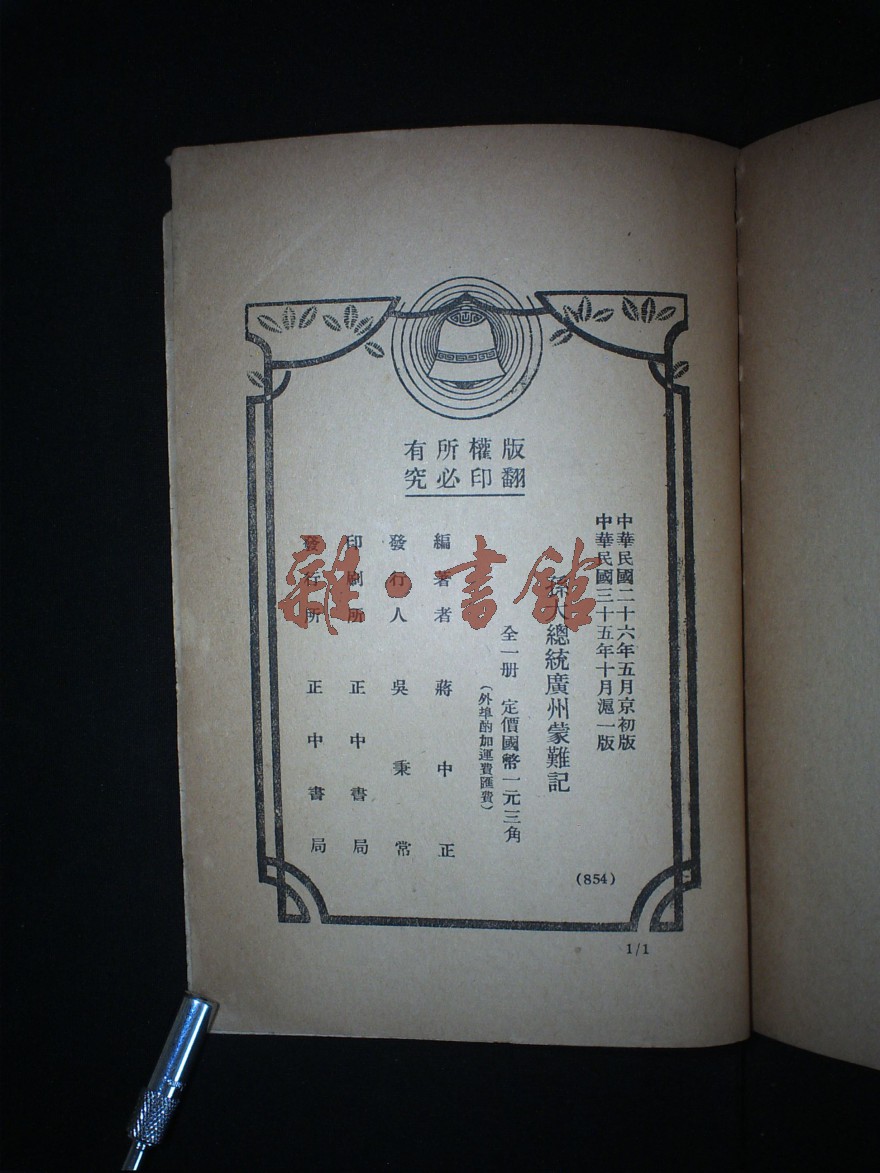 版權所有
翻印必究
中華民國二十六年五月京初版
中華民國三十五年十月滬一版
孫大總統廣州蒙難記
全一册 定價國幣一元三角
(外埠酌加運費匯費)
編著者 蔣中正
發行人 吳秉常
印刷所 正中書局
發行所 正中書局
(854)
1/1
雜·書館